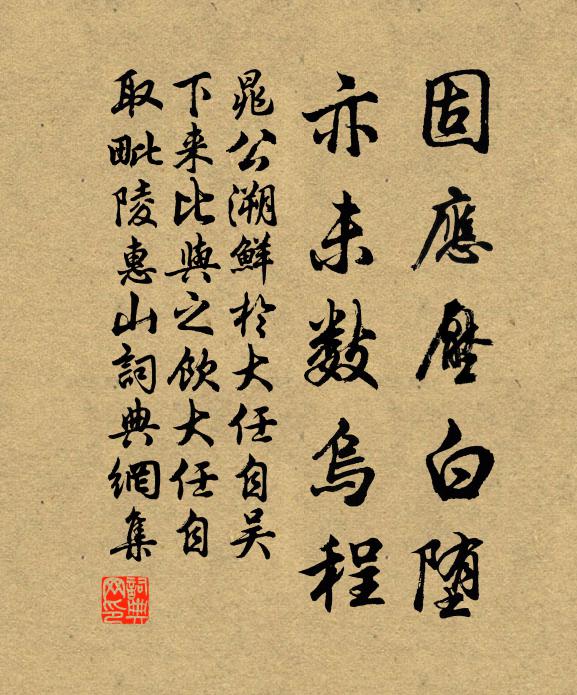 固應壓白墮
亦未數烏程
晁公溯鮮於大任自吳
下来比與之飲大任自
取毗陵惠山詞典網集
詞典网印